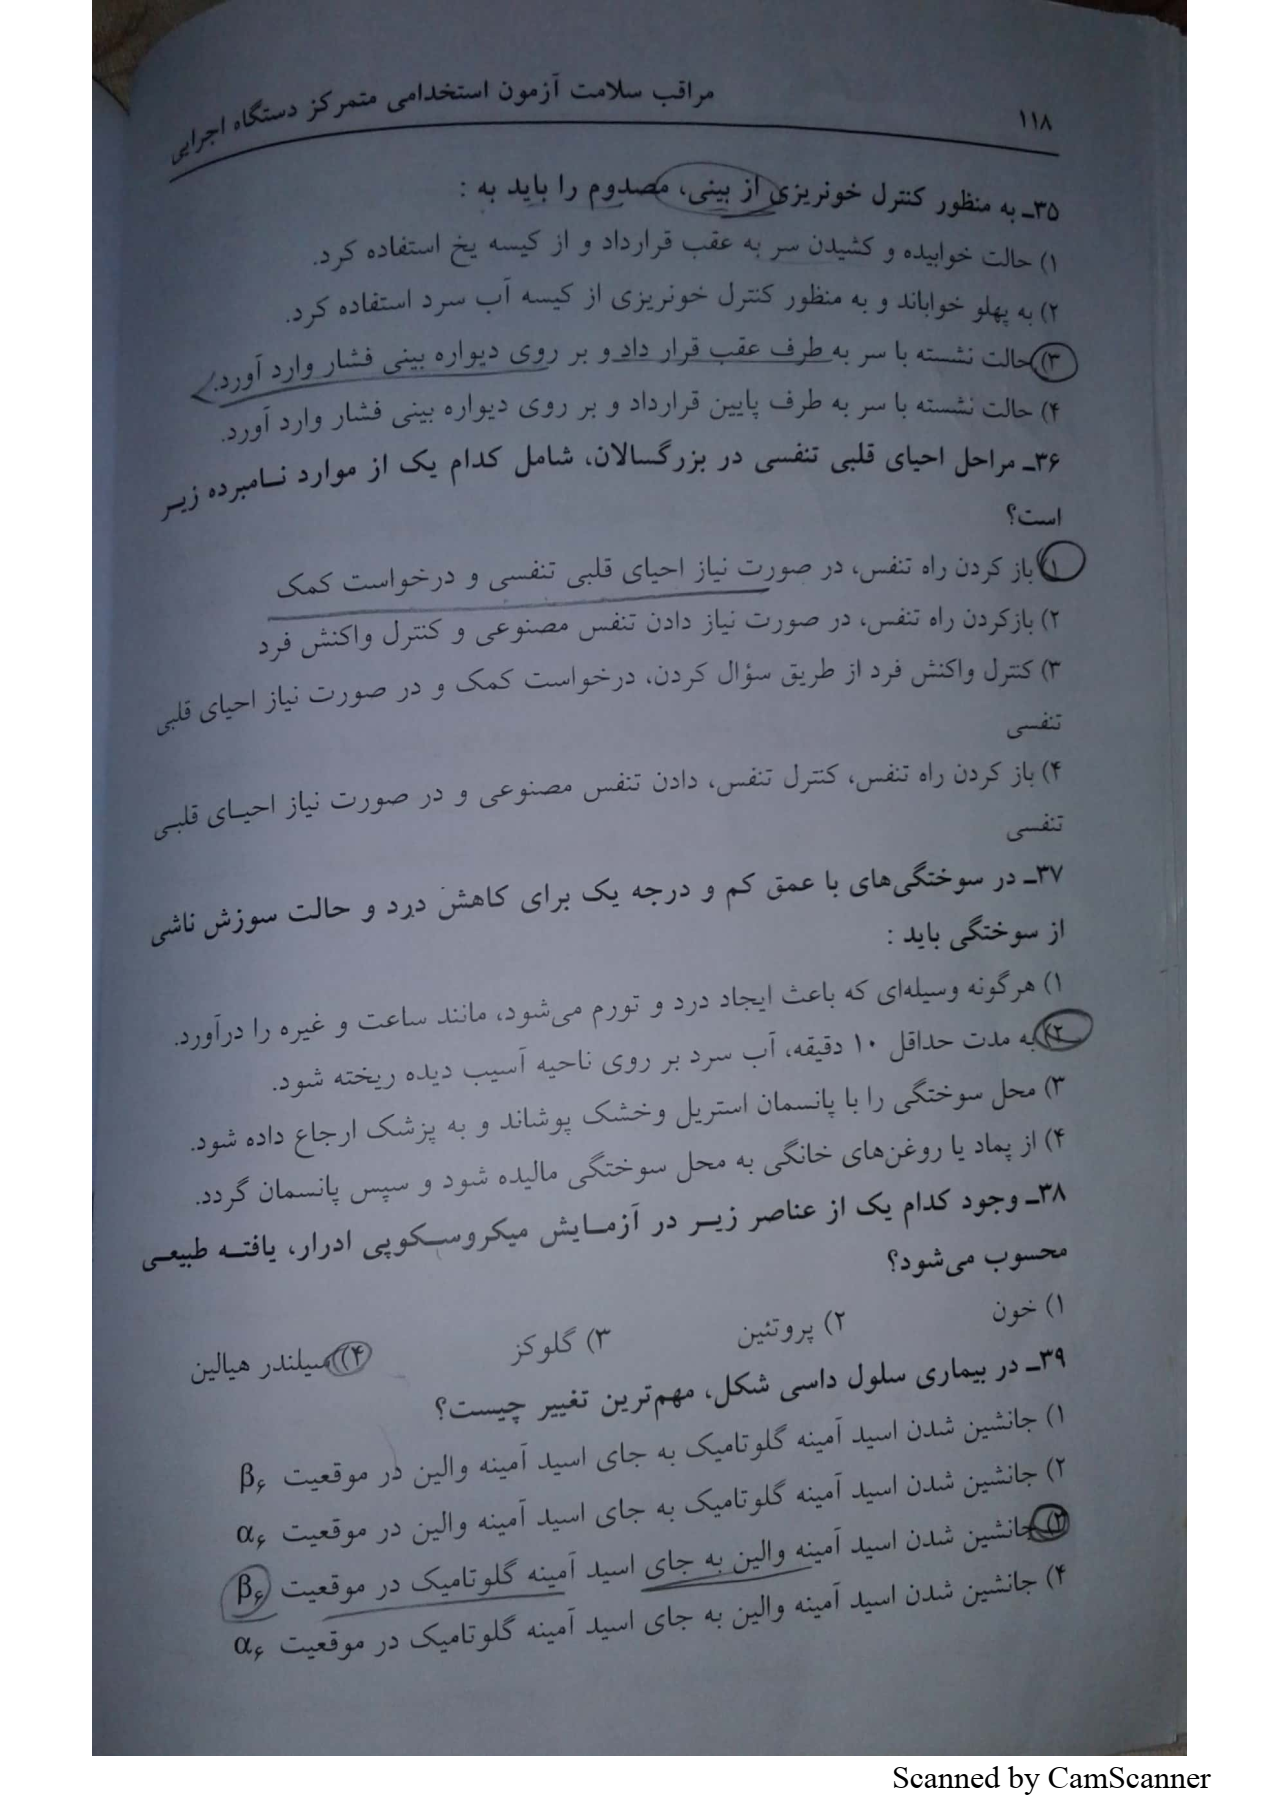 ۱۱۸
مراقب سلامت آزمون استخدامی متمرکز دستگاه اجرایی
۳۵ـ به منظور کنترل خونریزی از بینی، مصدوم را باید به :
۱) حالت خوابیده و کشیدن سر به عقب قرارداد و از کیسه یخ استفاده کرد.
۲) به پهلو خواباند و به منظور کنترل خونریزی از کیسه آب سرد استفاده کرد.
۳) حالت نشسته با سر به طرف عقب قرار داد و بر روی دیواره بینی فشار وارد آورد.
۴) حالت نشسته با سر به طرف پایین قرارداد و بر روی دیواره بینی فشار وارد آورد.
۳۶ـ مراحل احیای قلبی تنفسی در بزرگسالان، شامل کدام یک از موارد نـامبرده زیـر
است؟
۱) باز کردن راه تنفس، در صورت نیاز احیای قلبی تنفسی و درخواست کمک
۲) بازکردن راه تنفس، در صورت نیاز دادن تنفس مصنوعی و کنترل واکنش فرد
۳) کنترل واکنش فرد از طریق سؤال کردن، درخواست کمک و در صورت نیاز احیای قلبی
تنفسی
۴) باز کردن راه تنفس، کنترل تنفس، دادن تنفس مصنوعی و در صورت نیاز احیـای قلبـی
تنفسی
۳۷ـ در سوختگی‌های با عمق کم و درجه یک برای کاهش درد و حالت سوزش ناشی
از سوختگی باید :
۱) هرگونه وسیله‌ای که باعث ایجاد درد و تورم می‌شود، مانند ساعت و غیره را درآورد.
۲) به مدت حداقل ۱۰ دقیقه، آب سرد بر روی ناحیه آسیب دیده ریخته شود.
۳) محل سوختگی را با پانسمان استریل وخشک پوشاند و به پزشک ارجاع داده شود.
۴) از پماد یا روغن‌های خانگی به محل سوختگی مالیده شود و سپس پانسمان گردد.
۳۸ـ وجود کدام یک از عناصر زیـر در آزمـایش میکروسـکوپی ادرار، یافتـه طبیعـی
محسوب می‌شود؟
۱) خون ۲) پروتئین ۳) گلوکز ۴) سیلندر هیالین
۳۹ـ در بیماری سلول داسی شکل، مهم‌ترین تغییر چیست؟
۱) جانشین شدن اسید آمینه گلوتامیک به جای اسید آمینه والین در موقعیت β۶
۲) جانشین شدن اسید آمینه گلوتامیک به جای اسید آمینه والین در موقعیت α۶
۳) جانشین شدن اسید آمینه والین به جای اسید آمینه گلوتامیک در موقعیت β۶
۴) جانشین شدن اسید آمینه والین به جای اسید آمینه گلوتامیک در موقعیت α۶
Scanned by CamScanner